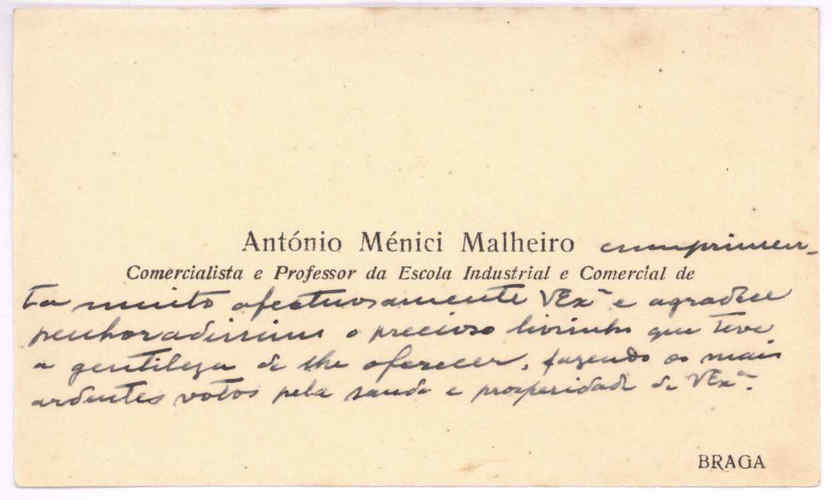 António Ménici Malheiro cumprimen-
Comercialista e Professor da Escola Industrial e Comercial de
ta muito afectuosamente VExª e agradece
penhoradissimo o precioso livrinho que teve
a gentileza de lhe oferecer, fazendo os mais
ardentes votos pela saude e prosperidade de VExª.
BRAGA